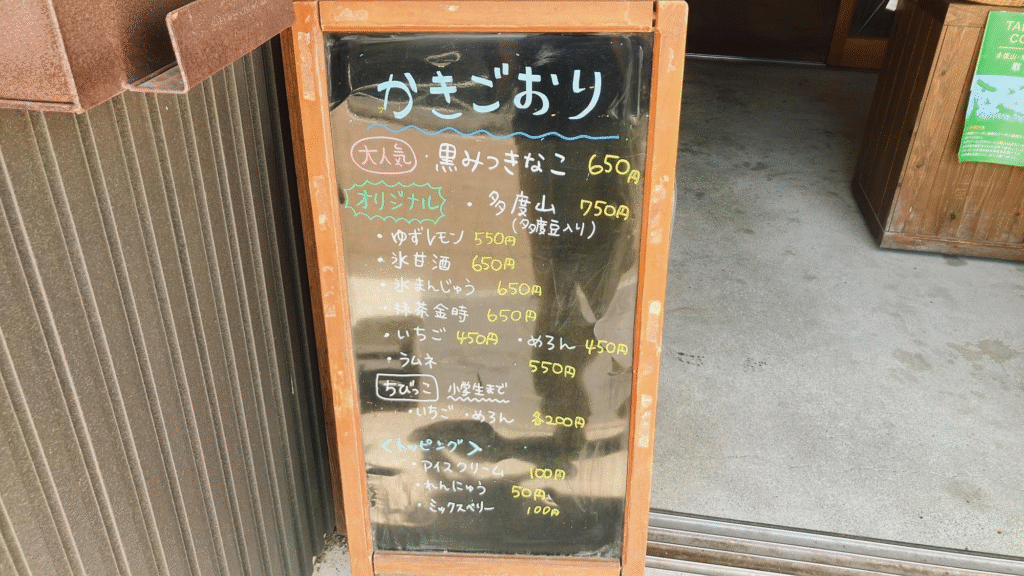 かきごおり
大人気 ・黒みつきなこ 650円
オリジナル ・多度山 750円
(多度豆入り)
・ゆずレモン 550円
・氷甘酒 650円
・氷まんじゅう 650円
抹茶金時 650円
・いちご 450円 ・めろん 450円
・ラムネ 550円
ちびっこ 小学生まで
・いちご・めろん 各200円
<トッピング>
・アイスクリーム 100円
・れんにゅう 50円
・ミックスベリー 100円